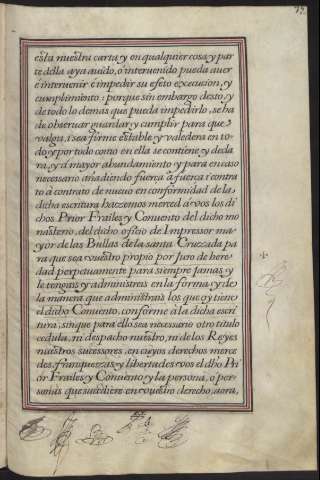 esta nuestra carta, y en qualquier cosa, y par
te della aya auido, o interuenido pueda auer
e interuenir e impedir su efeto execucion, y
cumplimiento: porque sin embargo desto, y
de todo lo demás que pueda impedirlo, se ha
de obseruar guardar, y cumplir para que
valga, i sea firme estable, y valedera en to
do, y por todo como en ella se contiene, y decla
ra, y á mayor abundamiento, y para en caso
necesario añadiendo fuerça à fuerça i contra
to à contrato de nueuo en conformidad de la
dicha escritura hazemos merced à vos los di
chos Prior Frailes, y Conuento del dicho mo
nasterio, del dicho ofisio de Impressor ma
yor de las Bullas de la santa Cruzada pa
ra que sea vuestro propio por Juro de here
dad perpetuamente para siempre Jamas, y
le tengais, y administreis en la forma, y de
la manera que administrais los que oy tiene
el dicho Conuento, conforme á la dicha escri
tura, sin que para ello sea necessario otro titulo
cedula, ni despacho nuestro, ni de los Reyes
nuestros sucessores, en cuyos derechos merce
des, franquezas, y libertades vos el dho Pri
or Frailes, y Conuento, y la persona, o per
sonas que sucediere en vuestro derecho, aora,